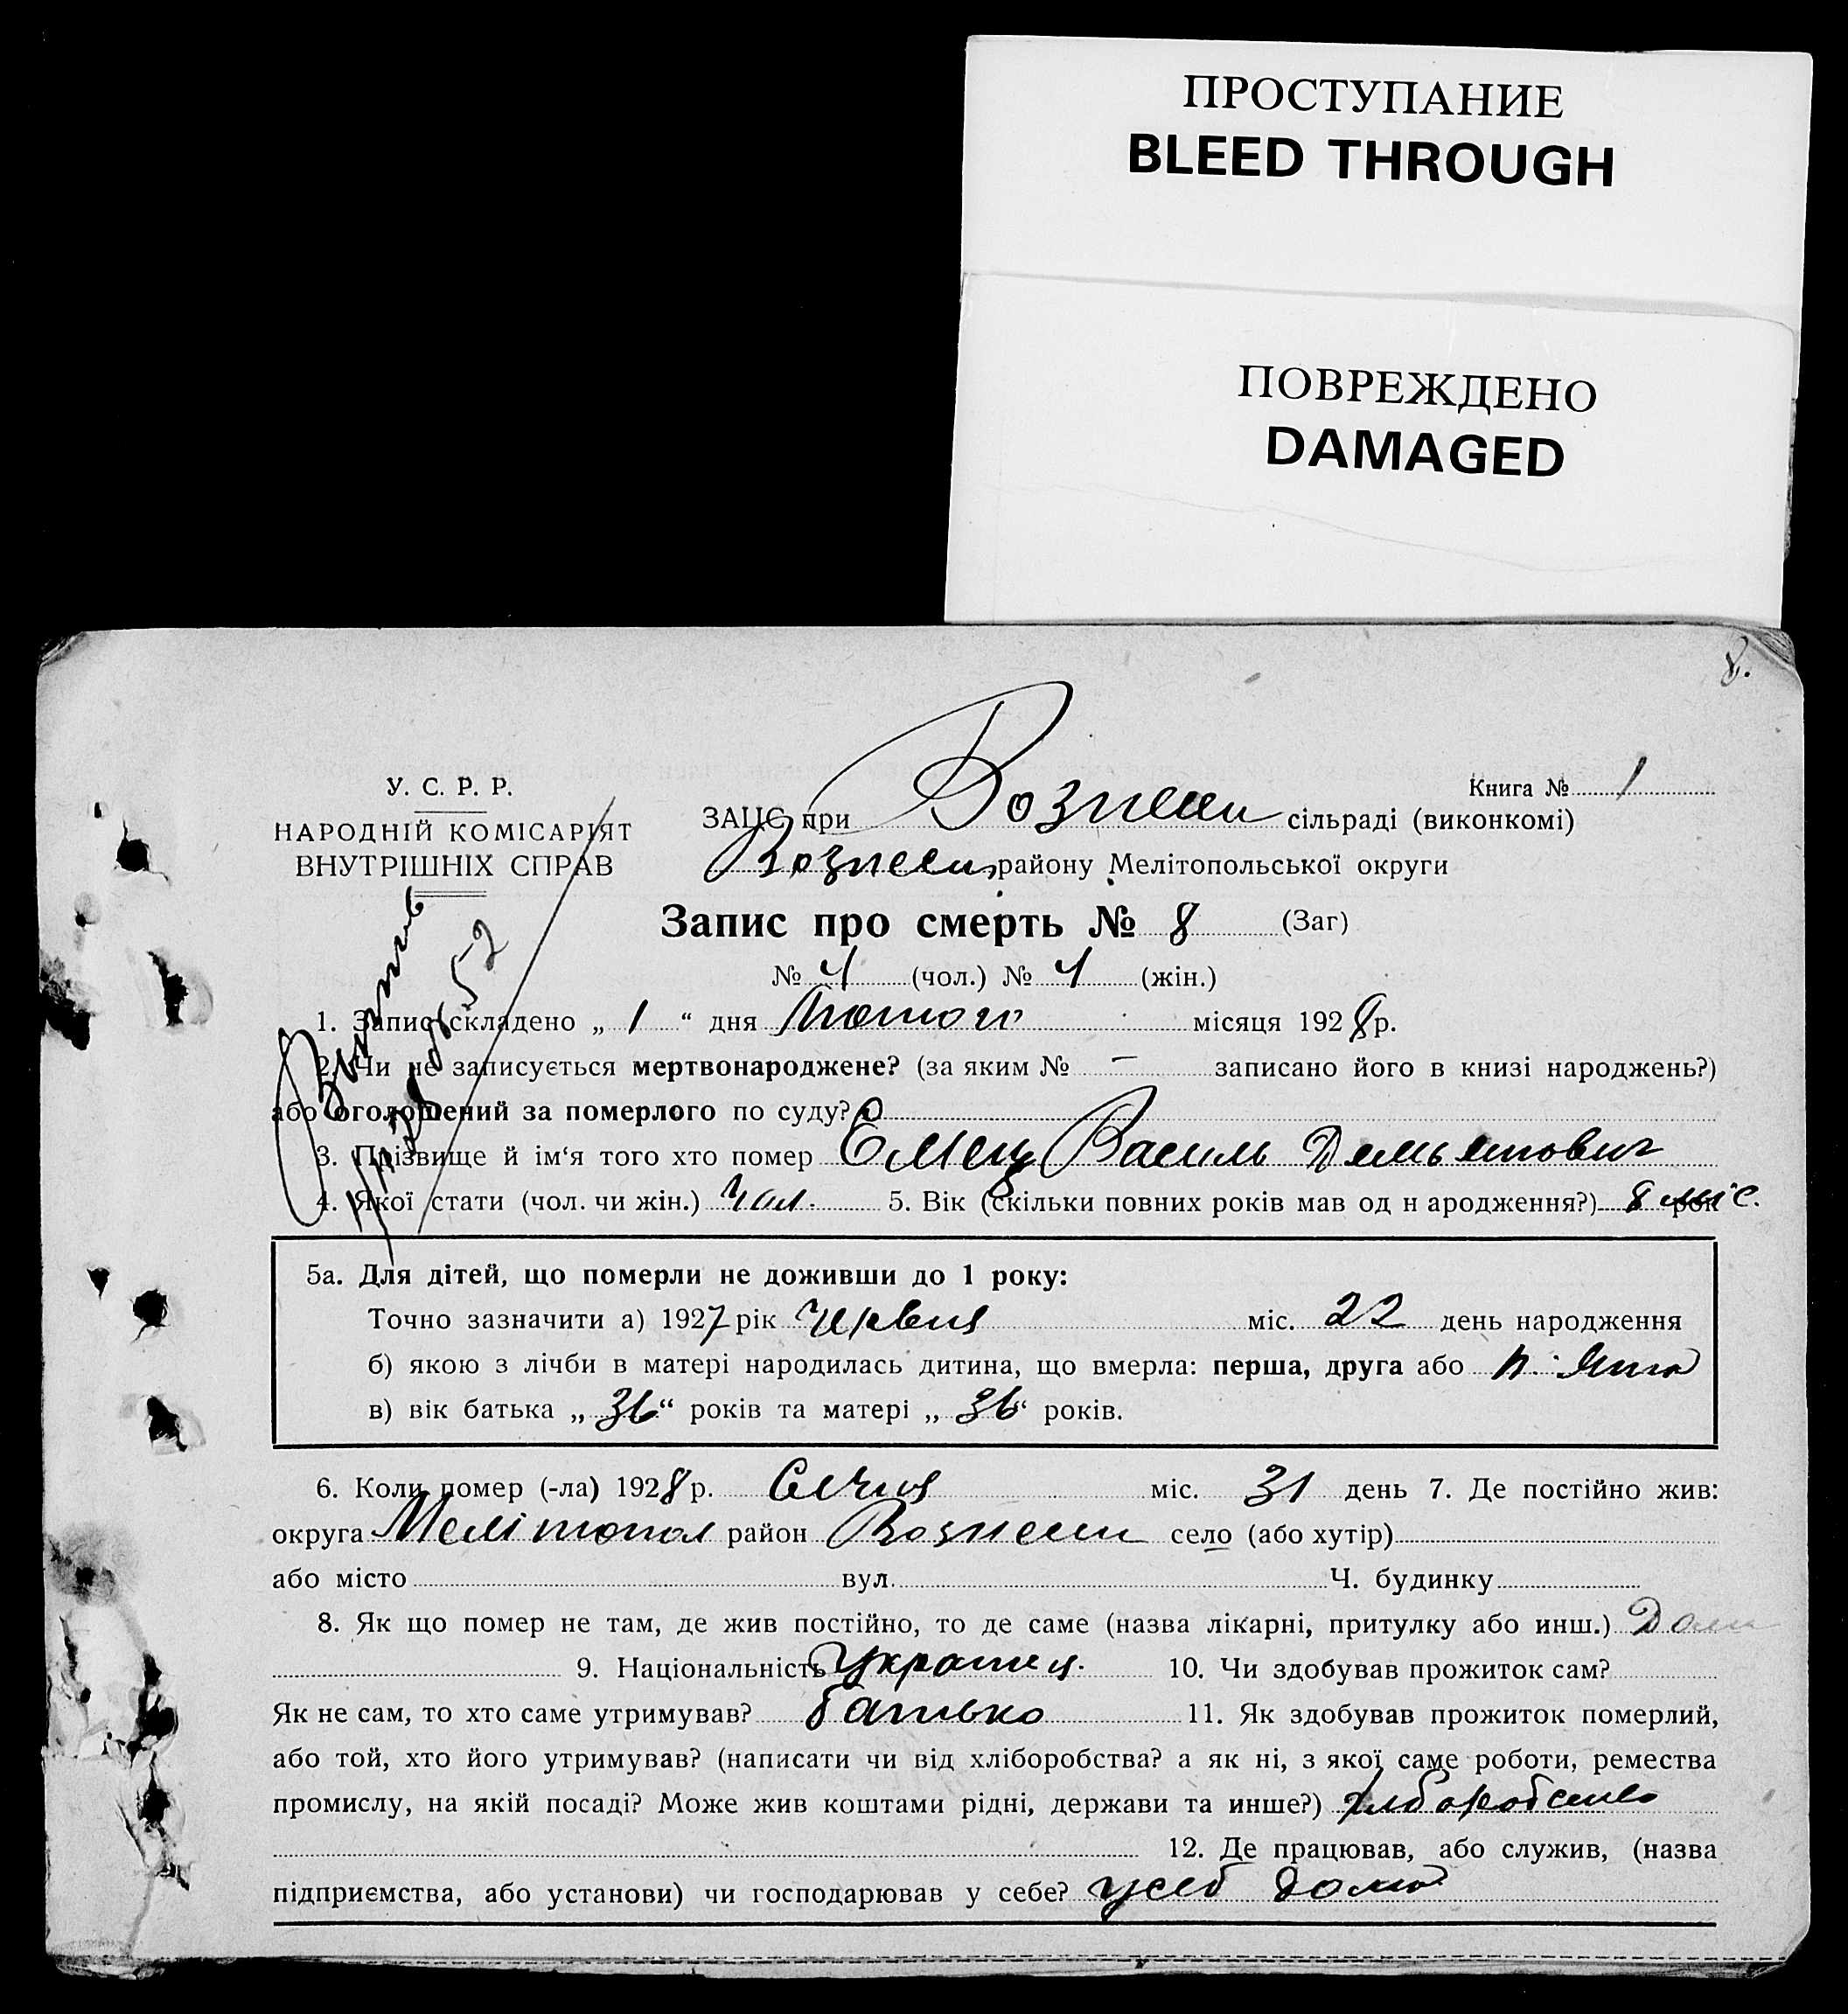 ПРОСТУПАНИЕ
BLEED THROUGH
ПОВРЕЖДЕНО
DAMAGED
8.
У. С. Р. Р.
НАРОДНІЙ КОМІСАРІЯТ
ВНУТРІШНІХ СПРАВ
Книга № 1
ЗАЦС при Вознесен сільраді (виконкомі)
Вознесен району Мелітопольської округи
Запис про смерть № 8 (Заг)
№ 4 (чол.) № 4 (жін.)
1. Запис складено „ 1 “ дня Лютого місяця 1928 р.
2. Чи не записується мертвонароджене? (за яким № — записано його в книзі народжень?)
або оголошений за померлого по суду?
3. Прізвище й ім‘я того хто помер Емец Василь Демьянович
4. Якої стати (чол. чи жін.) Чол. 5. Вік (скільки повних років мав од н ародження?) 8 міс. рок
5а. Для дітей, що померли не доживши до 1 року:
Точно зазначити а) 1927 рік Червня міс. 22 день народження
б) якою з лічби в матері народилась дитина, що вмерла: перша, друга або п'ята
в) вік батька „ 36 “ років та матері „ 36 “ років.
6. Коли помер (-ла) 1928 р. Січня міс. 31 день 7. Де постійно жив:
округа Мелітопол район Вознесен село (або хутір)
або місто вул. Ч. будинку
8. Як що помер не там, де жив постійно, то де саме (назва лікарні, притулку або инш.) Дома
9. Національність Украинец. 10. Чи здобував прожиток сам?
Як не сам, то хто саме утримував? батько 11. Як здобував прожиток померлий,
або той, хто його утримував? (написати чи від хліборобства? а як ні, з якої саме роботи, ремества
промислу, на якій посаді? Може жив коштами рідні, держави та инше?)
12. Де працював, або служив, (назва
підприємства, або установи) чи господарював у себе? усеб дома